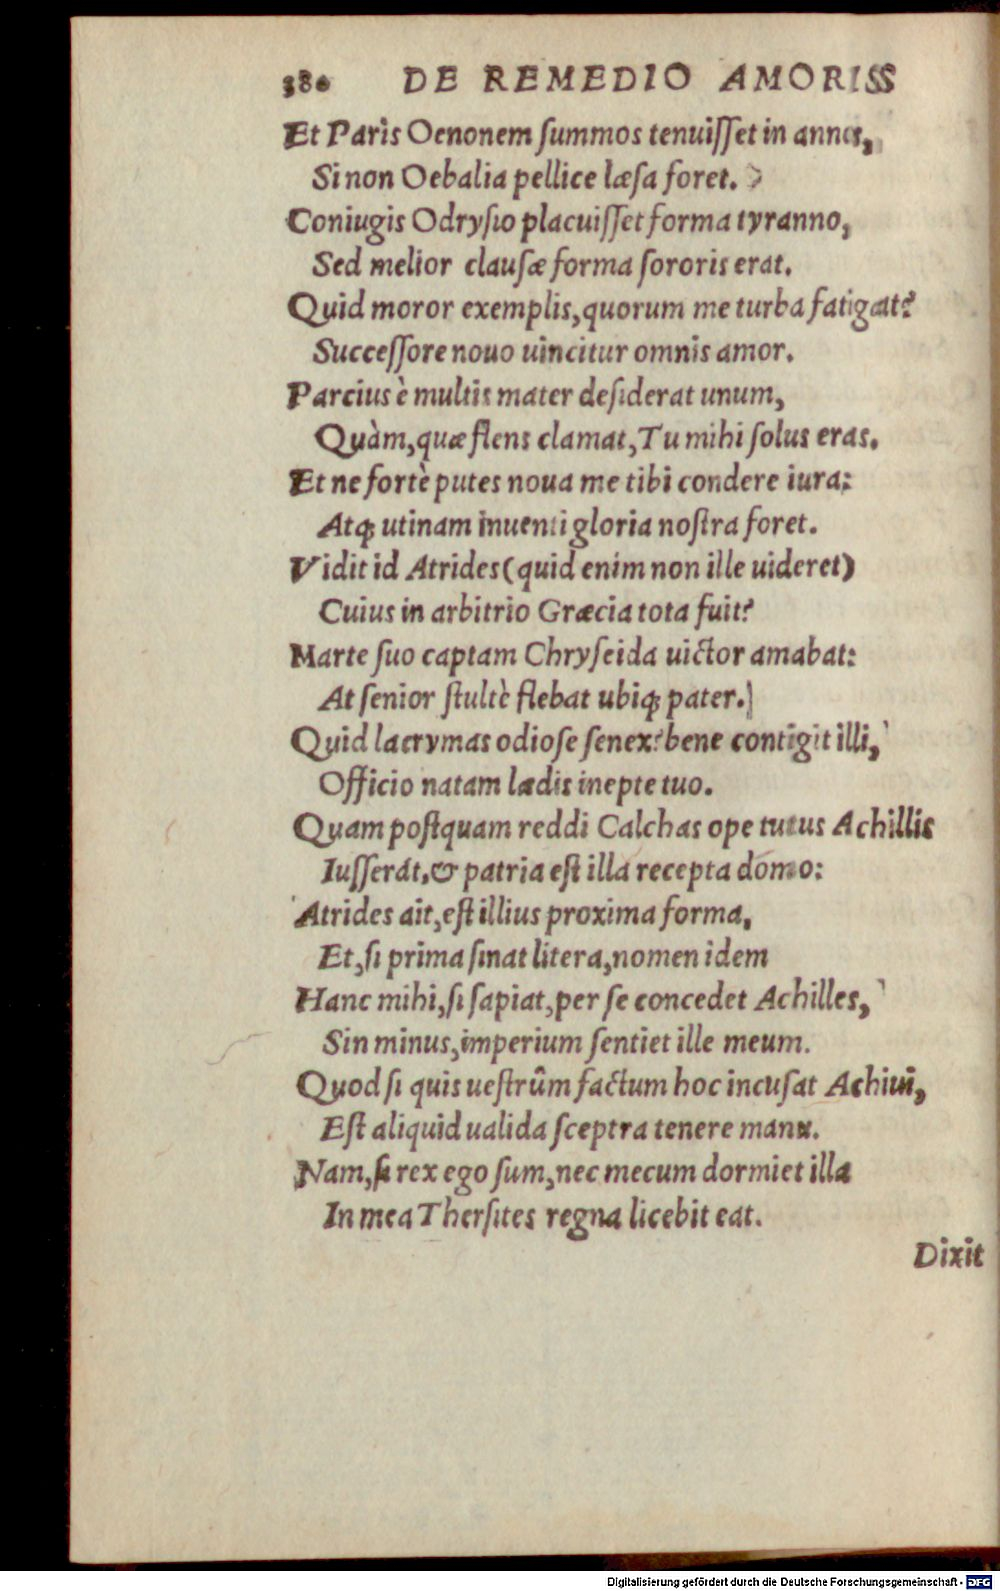 380 DE REMEDIO AMORIS
Et Paris Oenonem ſummos tenuiſſet in annos,
Si non Oebalia pellice læſa foret.
Coniugis Odryſio placuiſſet forma tyranno,
Sed melior clauſæ forma ſororis erat.
Quid moror exemplis, quorum me turba fatigat?
Succeſſore nouo uincitur omnis amor.
Parcius è multis mater deſiderat unum,
Quàm, quæ flens clamat, Tu mihi ſolus eras.
Et ne fortè putes noua me tibi condere iura:
Atq; utinam inuenti gloria noſtra foret.
Vidit id Atrides (quid enim non ille uideret)
Cuius in arbitrio Græcia tota fuit?
Marte ſuo captam Chryſeida uictor amabat:
At ſenior ſtultè flebat ubiq; pater.
Quid lacrymas odioſe ſenex? bene contigit illi,
Officio natam lædis inepte tuo.
Quam poſtquam reddi Calchas ope tutus Achillis
Iuſſerat, & patria eſt illa recepta domo:
Atrides ait, eſt illius proxima forma,
Et, ſi prima ſinat litera, nomen idem
Hanc mihi, ſi ſapiat, per ſe concedet Achilles,
Sin minus, imperium ſentiet ille meum.
Quod ſi quis ueſtrûm factum hoc incuſat Achiui,
Eſt aliquid ualida ſceptra tenere manu.
Nam, ſi rex ego ſum, nec mecum dormiet illa
In mea Therſites regna licebit eat.
Dixit
Digitalisierung gefördert durch die Deutsche Forschungsgemeinschaft - DFG